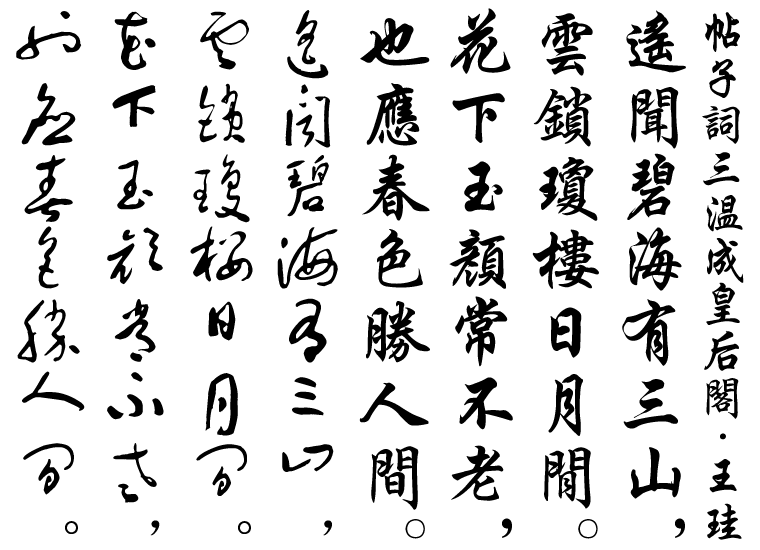 帖子詞三温成皇后閣·王珪
遙聞碧海有三山，
雲鎖瓊樓日月閒。
花下玉顏常不老，
也應春色勝人間。
遙聞碧海有三山，
雲鎖瓊樓日月閒。
花下玉顏常不老，
也應春色勝人間。